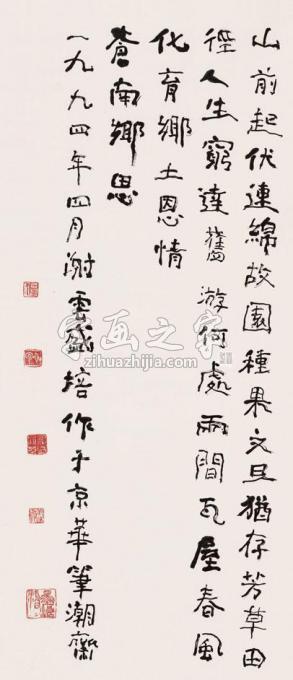 山前起伏連綿故園種果文旦猶存芳草田
徑人生窮達舊游何處兩間瓦屋春風
化育鄉土恩情
蒼南鄉思
一九九四年四月謝雲盛培作于京華筆潮齋
字画之家
zihuazhijia.com